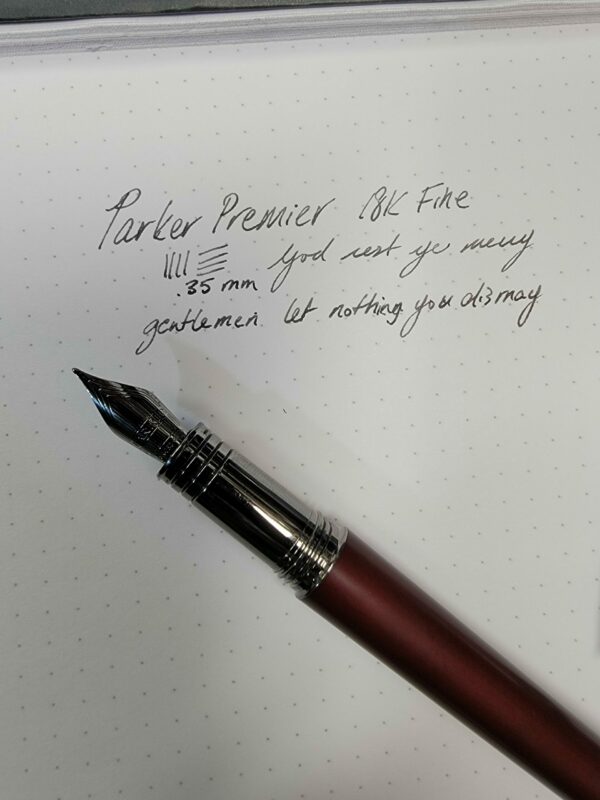 Parker Premier 18K Fine
God rest ye merry
.35 mm
gentlemen let nothing you dismay